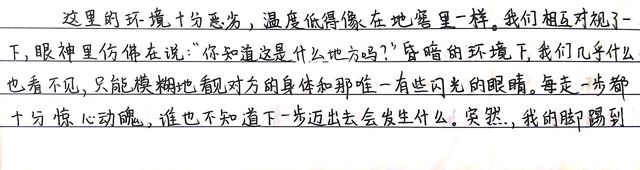 这里的环境十分恶劣，温度低得像在地窖里一样。我们相互对视了一
下，眼神里仿佛在说：“你知道这是什么地方吗？”昏暗的环境下，我们几乎什么
也看不见，只能模糊地看见对方的身体和那唯一有些闪光的眼睛。每走一步都
十分惊心动魄，谁也不知道下一步迈出去会发生什么。突然，我的脚踢到